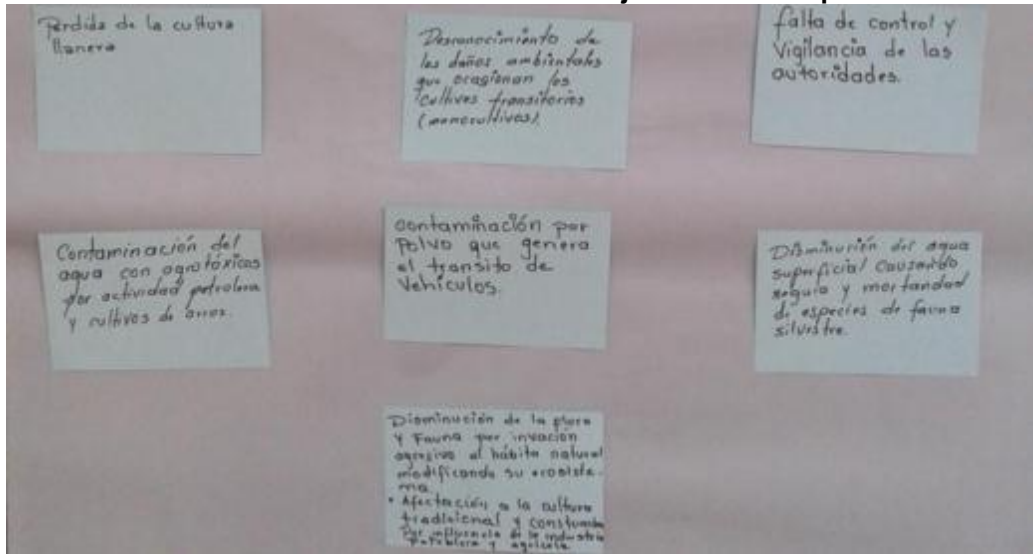 Perdida de la cultura
llanera
Desconocimiento de
los daños ambientales
que ocagionan los
cultivos transitorios
(monocultivos).
falta de control y
Vigilancia de las
autoridades.
Contaminación del
agua con agrotóxicos
por actividad petrolera
y cultivos de arroz.
contaminación por
Polvo que genera
el transito de
Vehículos.
Disminución del agua
superficial causando
seguia y mortandad
de especies de fauna
silvestre.
Disminución de la flora
y Fauna por invación
agresiva al hábita natural
modificando su ecosiste-
ma.
• Afectación a la cultura
tradicional y constumbre
Por influencia de la industria
Petrolera y agricola